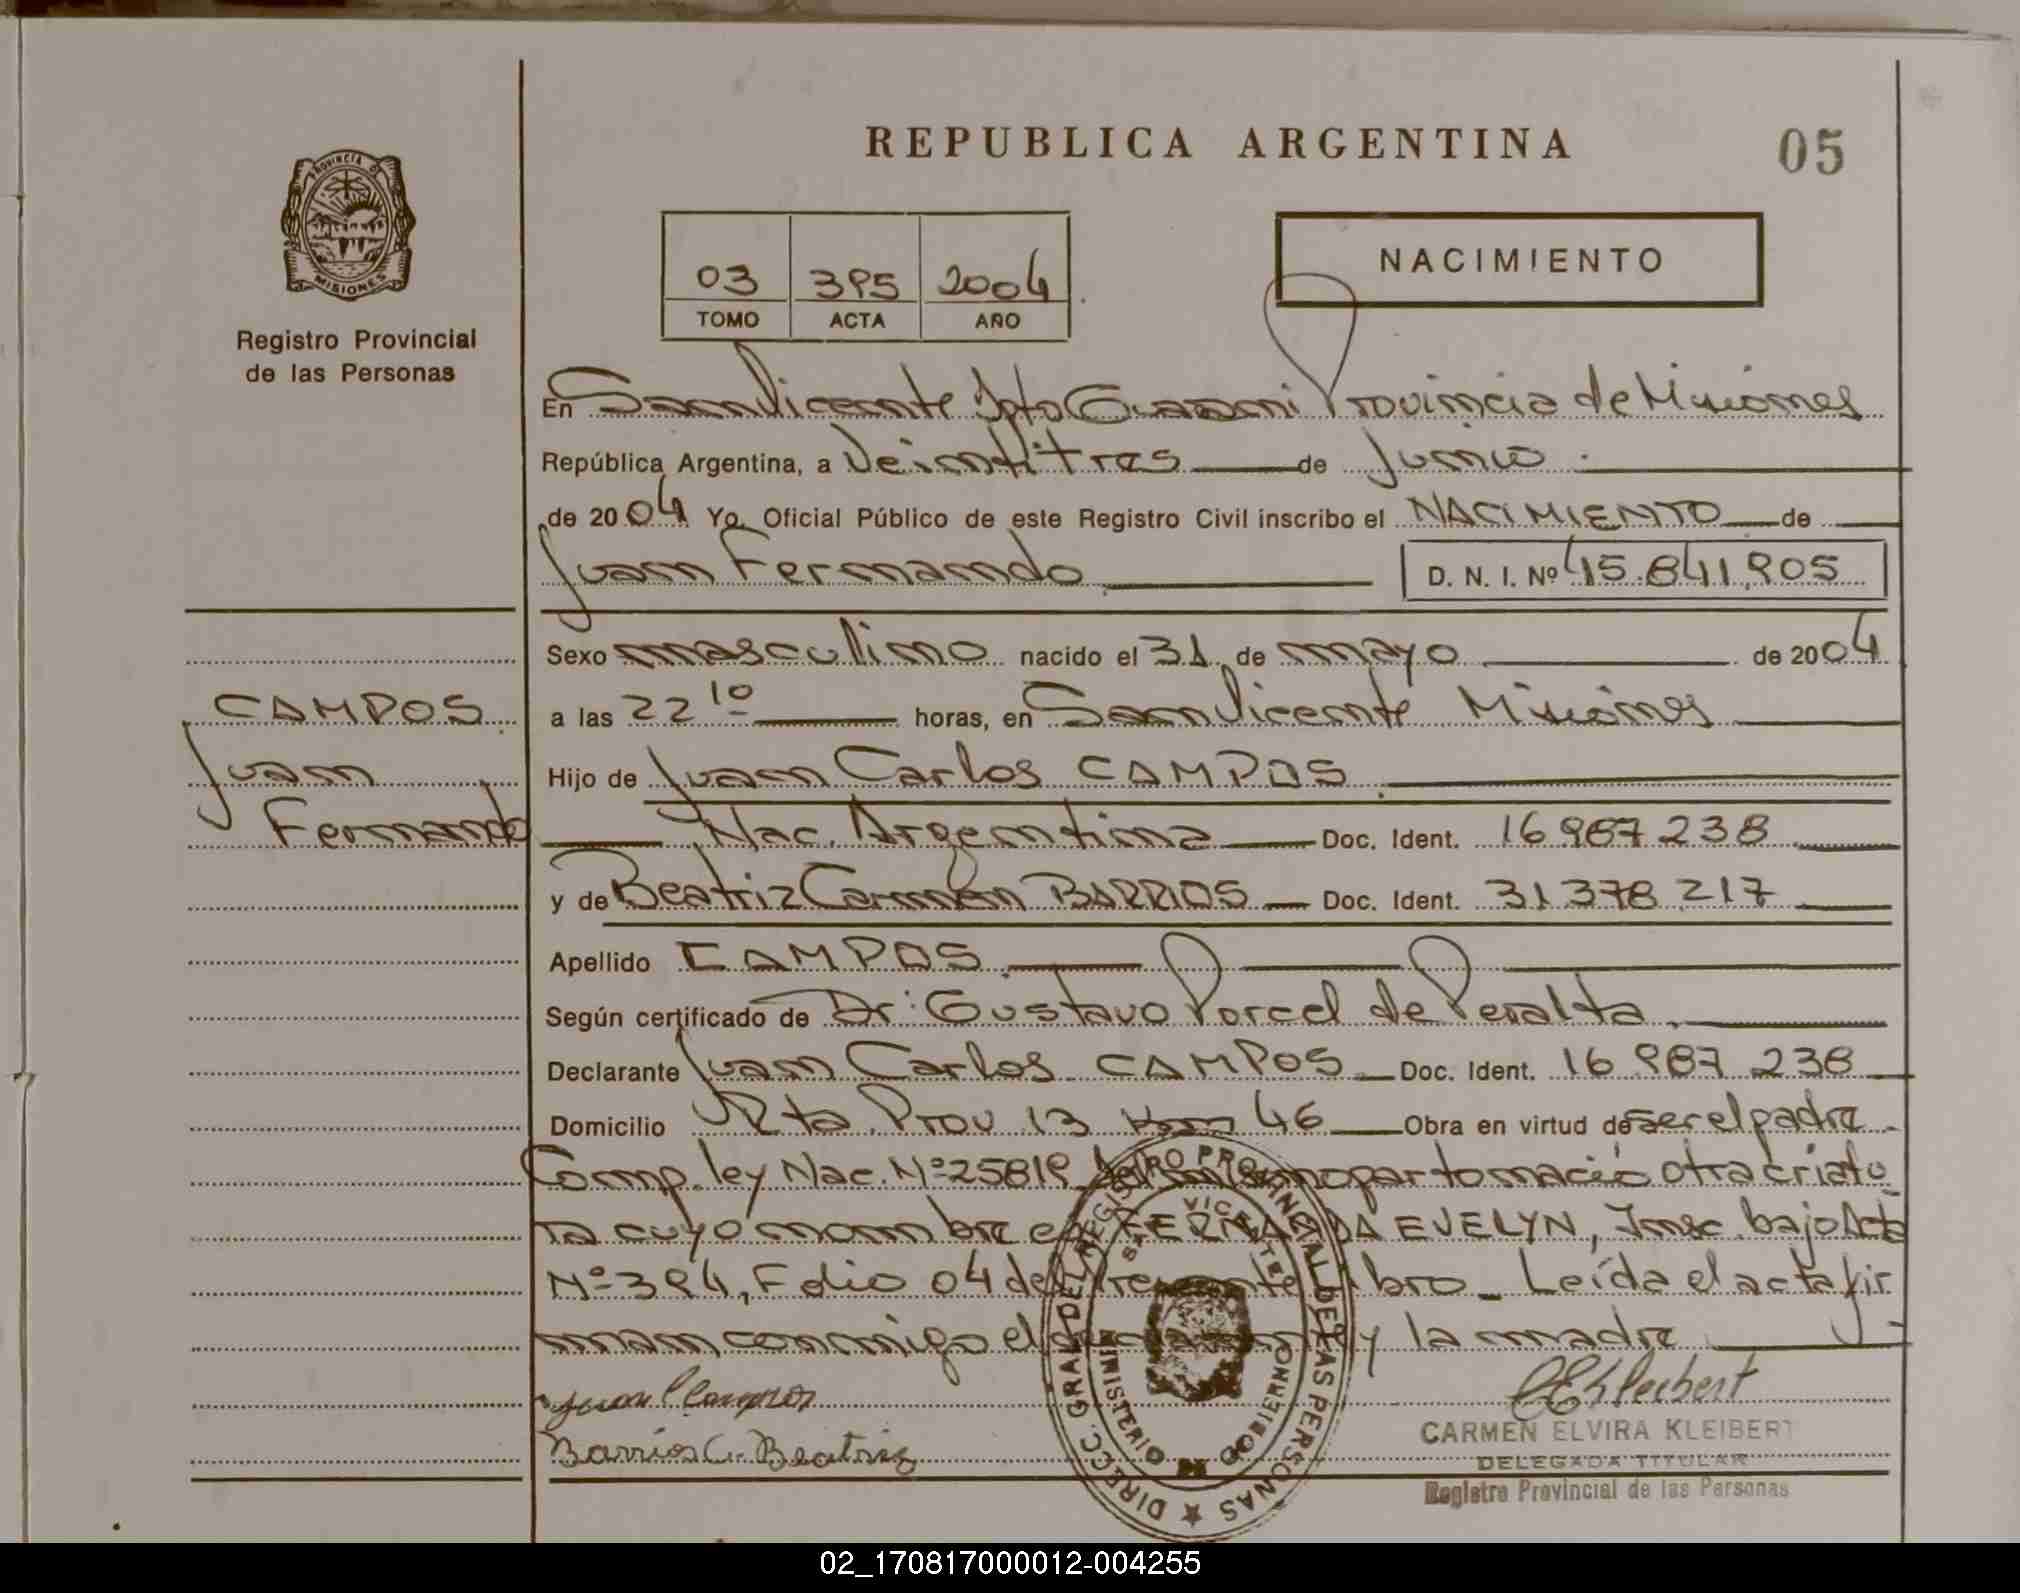 REPUBLICA ARGENTINA
05
PROVINCIA D MISIONES
Registro Provincial
de las Personas
03 395 2004
TOMO ACTA AÑO
NACIMIENTO
En San Vicente Dpto Guarani Provincia de Misiones
República Argentina, a Veintitres de Junio
de 2004 Yo, Oficial Público de este Registro Civil inscribo el NACIMIENTO de
Juan Fernando D. N. I. Nº 45.841.905
Sexo masculino nacido el 31 de mayo de 2004
CAMPOS
Juan
Fernando
a las 22 10 horas, en San Vicente Misiones
Hijo de Juan Carlos CAMPOS
Nac. Argentina Doc. Ident. 16 987 238
y de Beatriz Carmen BARRIOS Doc. Ident. 31 378 217
Apellido CAMPOS
Según certificado de Dr. Gustavo Porcel de Peralta
Declarante Juan Carlos CAMPOS Doc. Ident. 16 987 238
Domicilio Rta Prov 13 Km 46 Obra en virtud de ser el padre
Comp. ley Nac. Nº 25819 parto nació otra criatu
ra cuyo nombre es FERNANDA EVELYN, Insc. bajo Acta
Nº 394, Folio 04 del presente libro _ Leída el acta fir
man conmigo el declarante y la madre
Juan C Campos
Barrios C. Beatriz
CEKleibert
CARMEN ELVIRA KLEIBERT
DELEGADA TITULAR
Registro Provincial de las Personas
DIRECC. GRAL DEL REGISTRO PROVINCIAL DE LAS PERSONAS
SAN VICENTE
MINISTERIO DE GOBIERNO
02_170817000012-004255